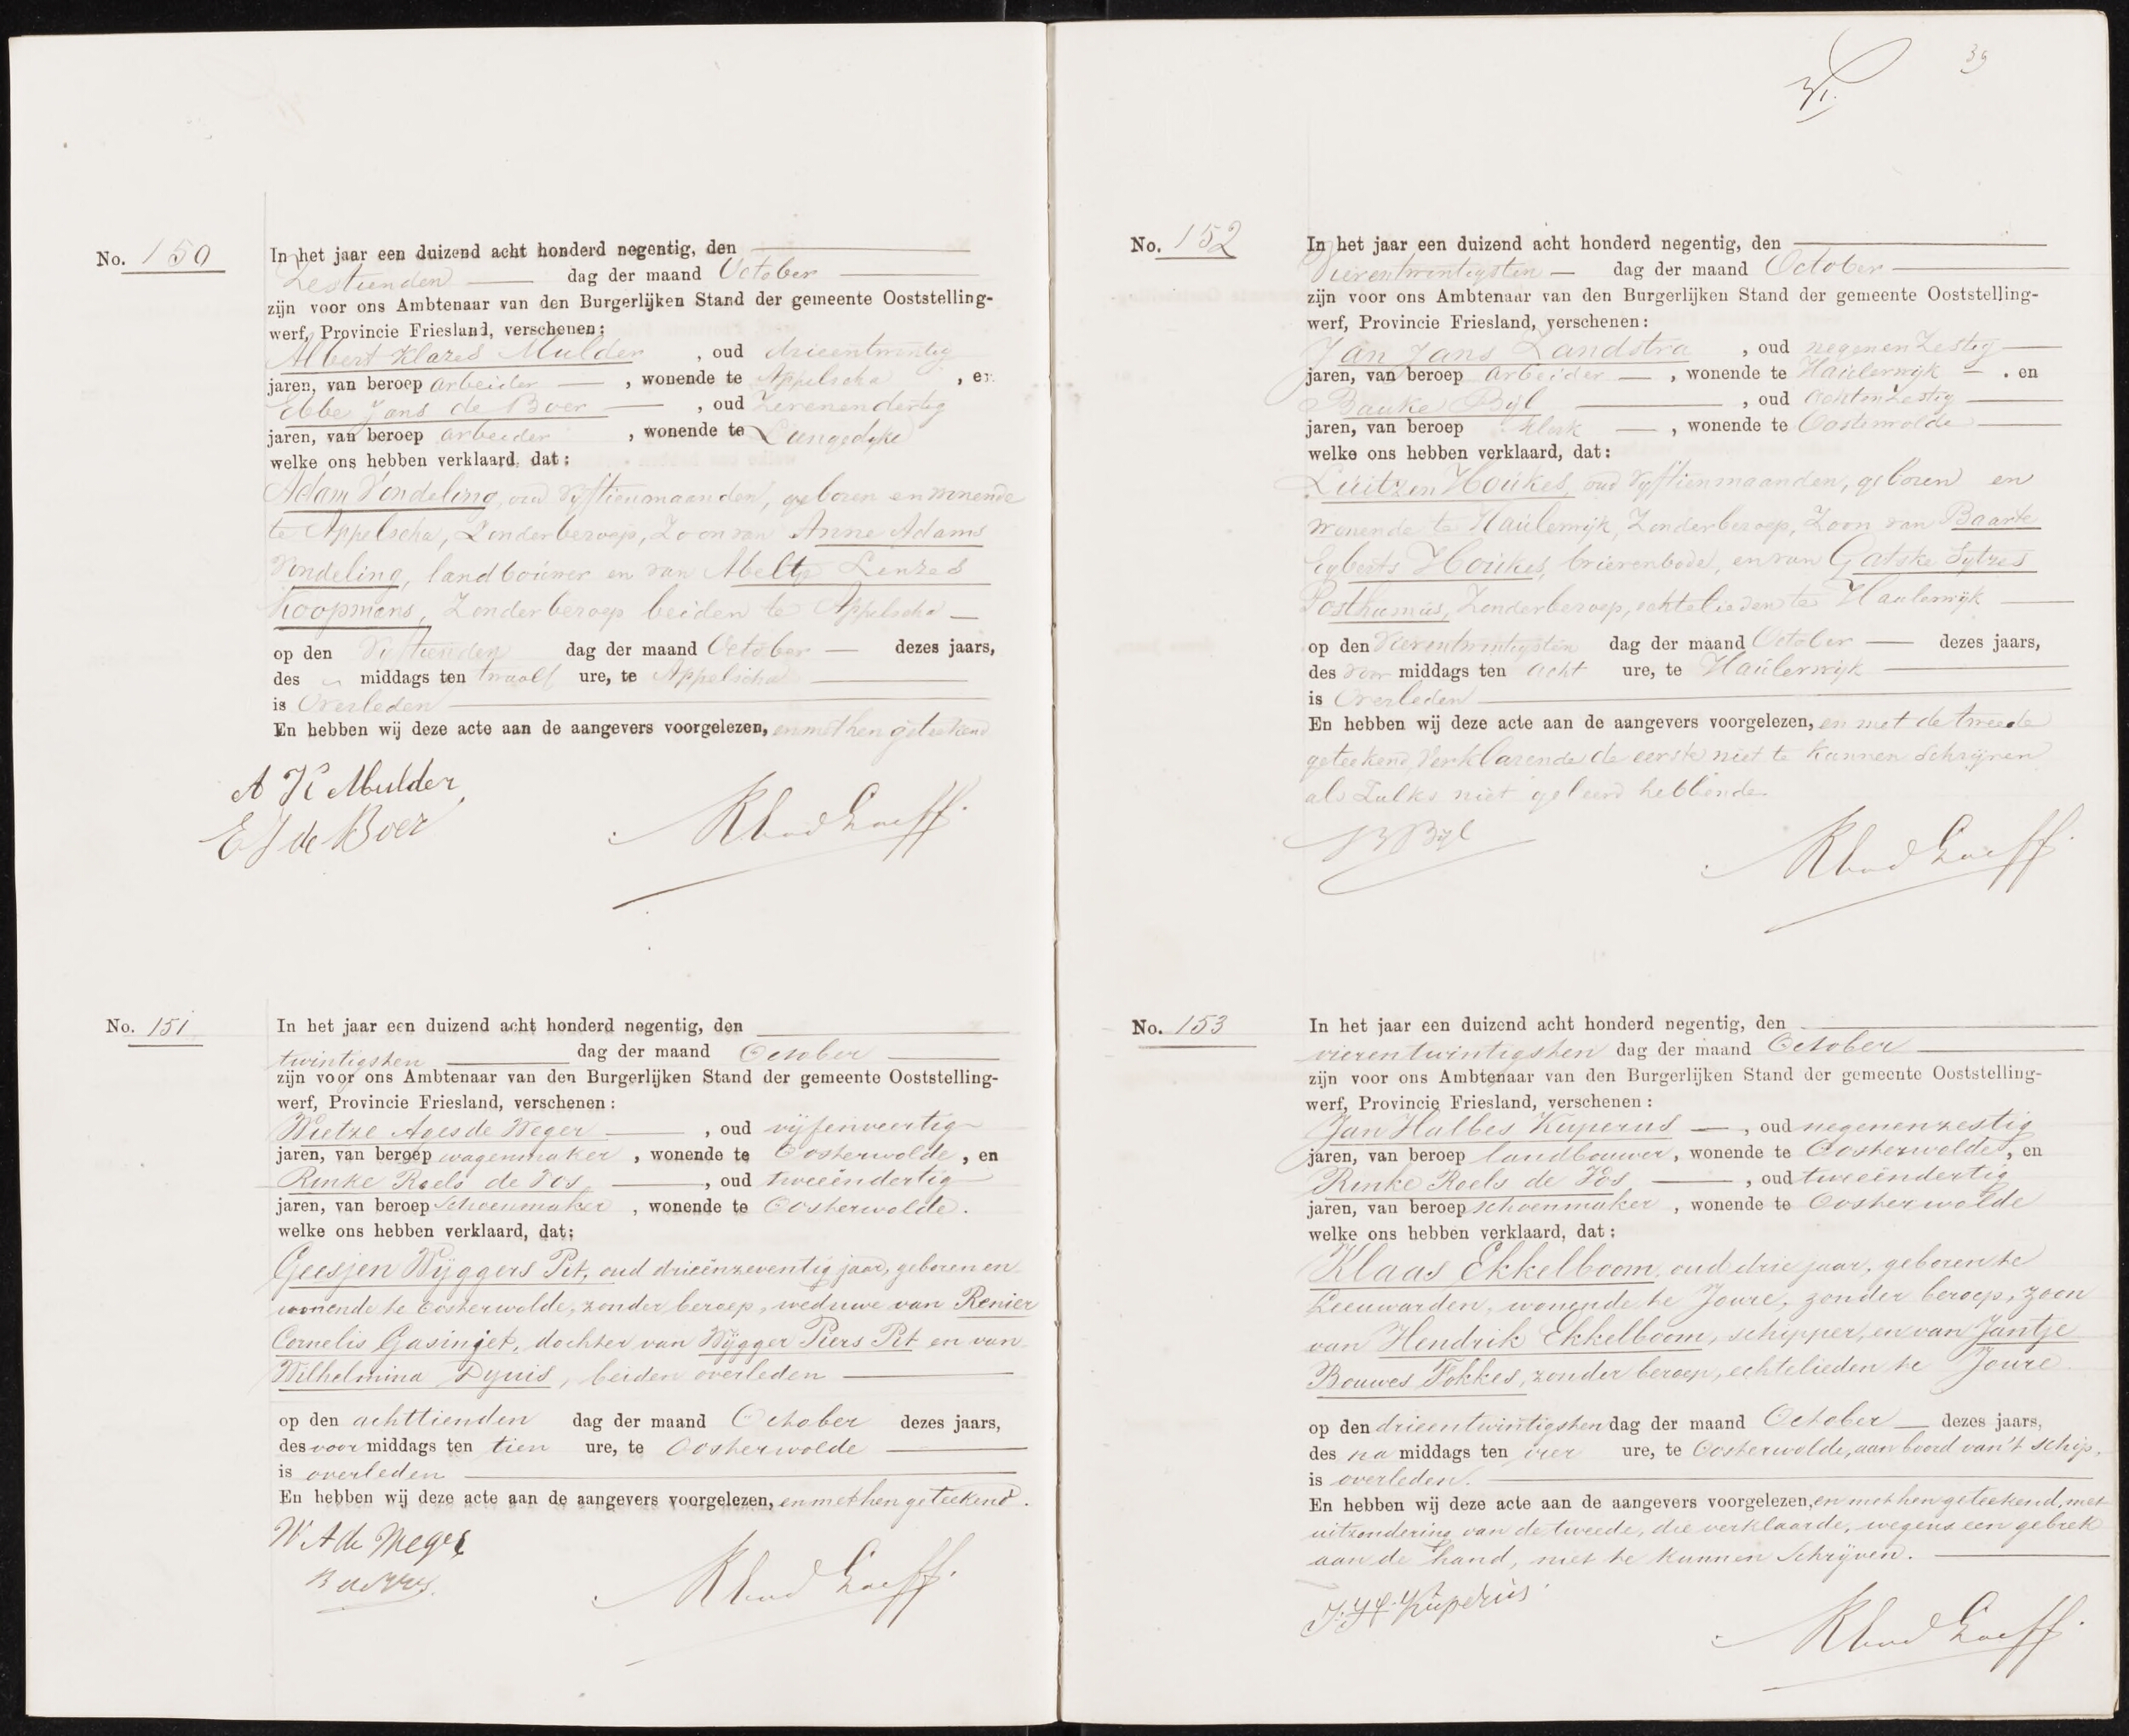 No. 150
In het jaar een duizend acht honderd negentig, den
Zestienden dag der maand October
zijn voor ons Ambtenaar van den Burgerlijken Stand der gemeente Ooststelling-
werf, Provincie Friesland, verschenen:
Albert Klazes Mulder, oud drieentwintig
jaren, van beroep arbeider, wonende te Appelscha, en
Ebbe Jans de Boer, oud Zevenendertig
jaren, van beroep arbeider, wonende te Langedijke
welke ons hebben verklaard, dat:
Adam Vondeling, oud vyftienmaanden, geboren en wonende
te Appelscha, Zonder beroep, Zoon van Anne Adams
Vondeling, landbouwer en van Abeltje Lenzes
Koopmans, Zonder beroep beiden te Appelscha
op den Vyftienden dag der maand October dezes jaars,
des middags ten twaalf ure, te Appelscha
is Overleden
En hebben wij deze acte aan de aangevers voorgelezen, en met hen geteekend
A K Mulder
E J de Boer
No. 151
In het jaar een duizend acht honderd negentig, den
twintigsten dag der maand October
zijn voor ons Ambtenaar van den Burgerlijken Stand der gemeente Ooststelling-
werf, Provincie Friesland, verschenen:
Wietze Ages de Weger, oud vijfenveertig
jaren, van beroep wagenmaker, wonende te Oosterwolde, en
Rinke Roels de Vos, oud tweeëndertig
jaren, van beroep schoenmaker, wonende te Oosterwolde.
welke ons hebben verklaard, dat:
Geesjen Wÿggers Pit, oud drieënzeventig jaar, geboren en
wonende te Oosterwolde, zonder beroep, weduwe van Renier
Cornelis Gasinjet, dochter van Wÿgger Piers Pit en van
Wilhelmina Dyuis, beiden overleden
op den achttienden dag der maand October dezes jaars,
des voor middags ten tien ure, te Oosterwolde
is overleden
En hebben wij deze acte aan de aangevers voorgelezen, en met hen geteekend.
W A de Weger
39
No. 152
In het jaar een duizend acht honderd negentig, den
Vierentwintigsten dag der maand October
zijn voor ons Ambtenaar van den Burgerlijken Stand der gemeente Ooststelling-
werf, Provincie Friesland, verschenen:
Jan Jans Zandstra, oud negenenZestig
jaren, van beroep arbeider, wonende te Haulerwijk. en
Bauke Bijl, oud achtenZestig
jaren, van beroep Klerk, wonende te Oosterwolde
welke ons hebben verklaard, dat:
Luitzen Houkes, oud vyftienmaanden, geboren en
wonende te Haulerwijk, Zonder beroep, Zoon van Baarte
Egberts Houkes, brievenbode, en van Gatske Sytzes
Posthumus, Zonder beroep, echtelieden te Haulerwijk
op den Vierentwintigsten dag der maand October dezes jaars,
des voor middags ten acht ure, te Haulerwijk
is Overleden
En hebben wij deze acte aan de aangevers voorgelezen, en met de tweede
geteekend, Verklarende de eerste niet te kunnen Schrijven
als Zulks niet geleerd hebbende
B Bijl
No. 153
In het jaar een duizend acht honderd negentig, den
vierentwintigsten dag der maand October
zijn voor ons Ambtenaar van den Burgerlijken Stand der gemeente Ooststelling-
werf, Provincie Friesland, verschenen:
Jan Halbes Kuperus, oud negenenzestig
jaren, van beroep landbouwer, wonende te Oosterwolde, en
Rinke Roels de Vos, oud tweeëndertig
jaren, van beroep schoenmaker, wonende te Oosterwolde
welke ons hebben verklaard, dat:
Klaas Ekkelboom, oud drie jaar, geboren te
Leeuwarden, wonende te Joure, zonder beroep, zoon
van Hendrik Ekkelboom, schipper, en van Jantje
Bouwes Fokkes, zonder beroep, echtelieden te Joure.
op den drieentwintigsten dag der maand October dezes jaars,
des na middags ten vier ure, te Oosterwolde, aan boord van 't schip,
is overleden.
En hebben wij deze acte aan de aangevers voorgelezen, en met hen geteekend, met
uitzondering van de tweede, die verklaarde, wegens een gebrek
aan de hand, niet te kunnen Schrijven.
J. H. Kuperus